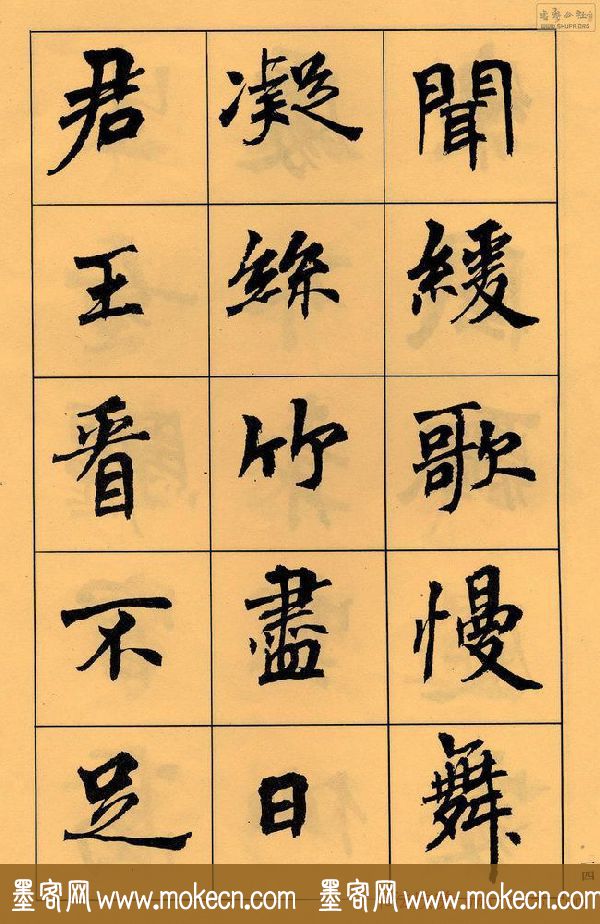 聞緩歌慢舞
凝絲竹盡日
君王看不足
四
墨客网 www.mokecn.com 墨客网 www.mokecn.com
WWW.SHUFA.ORG